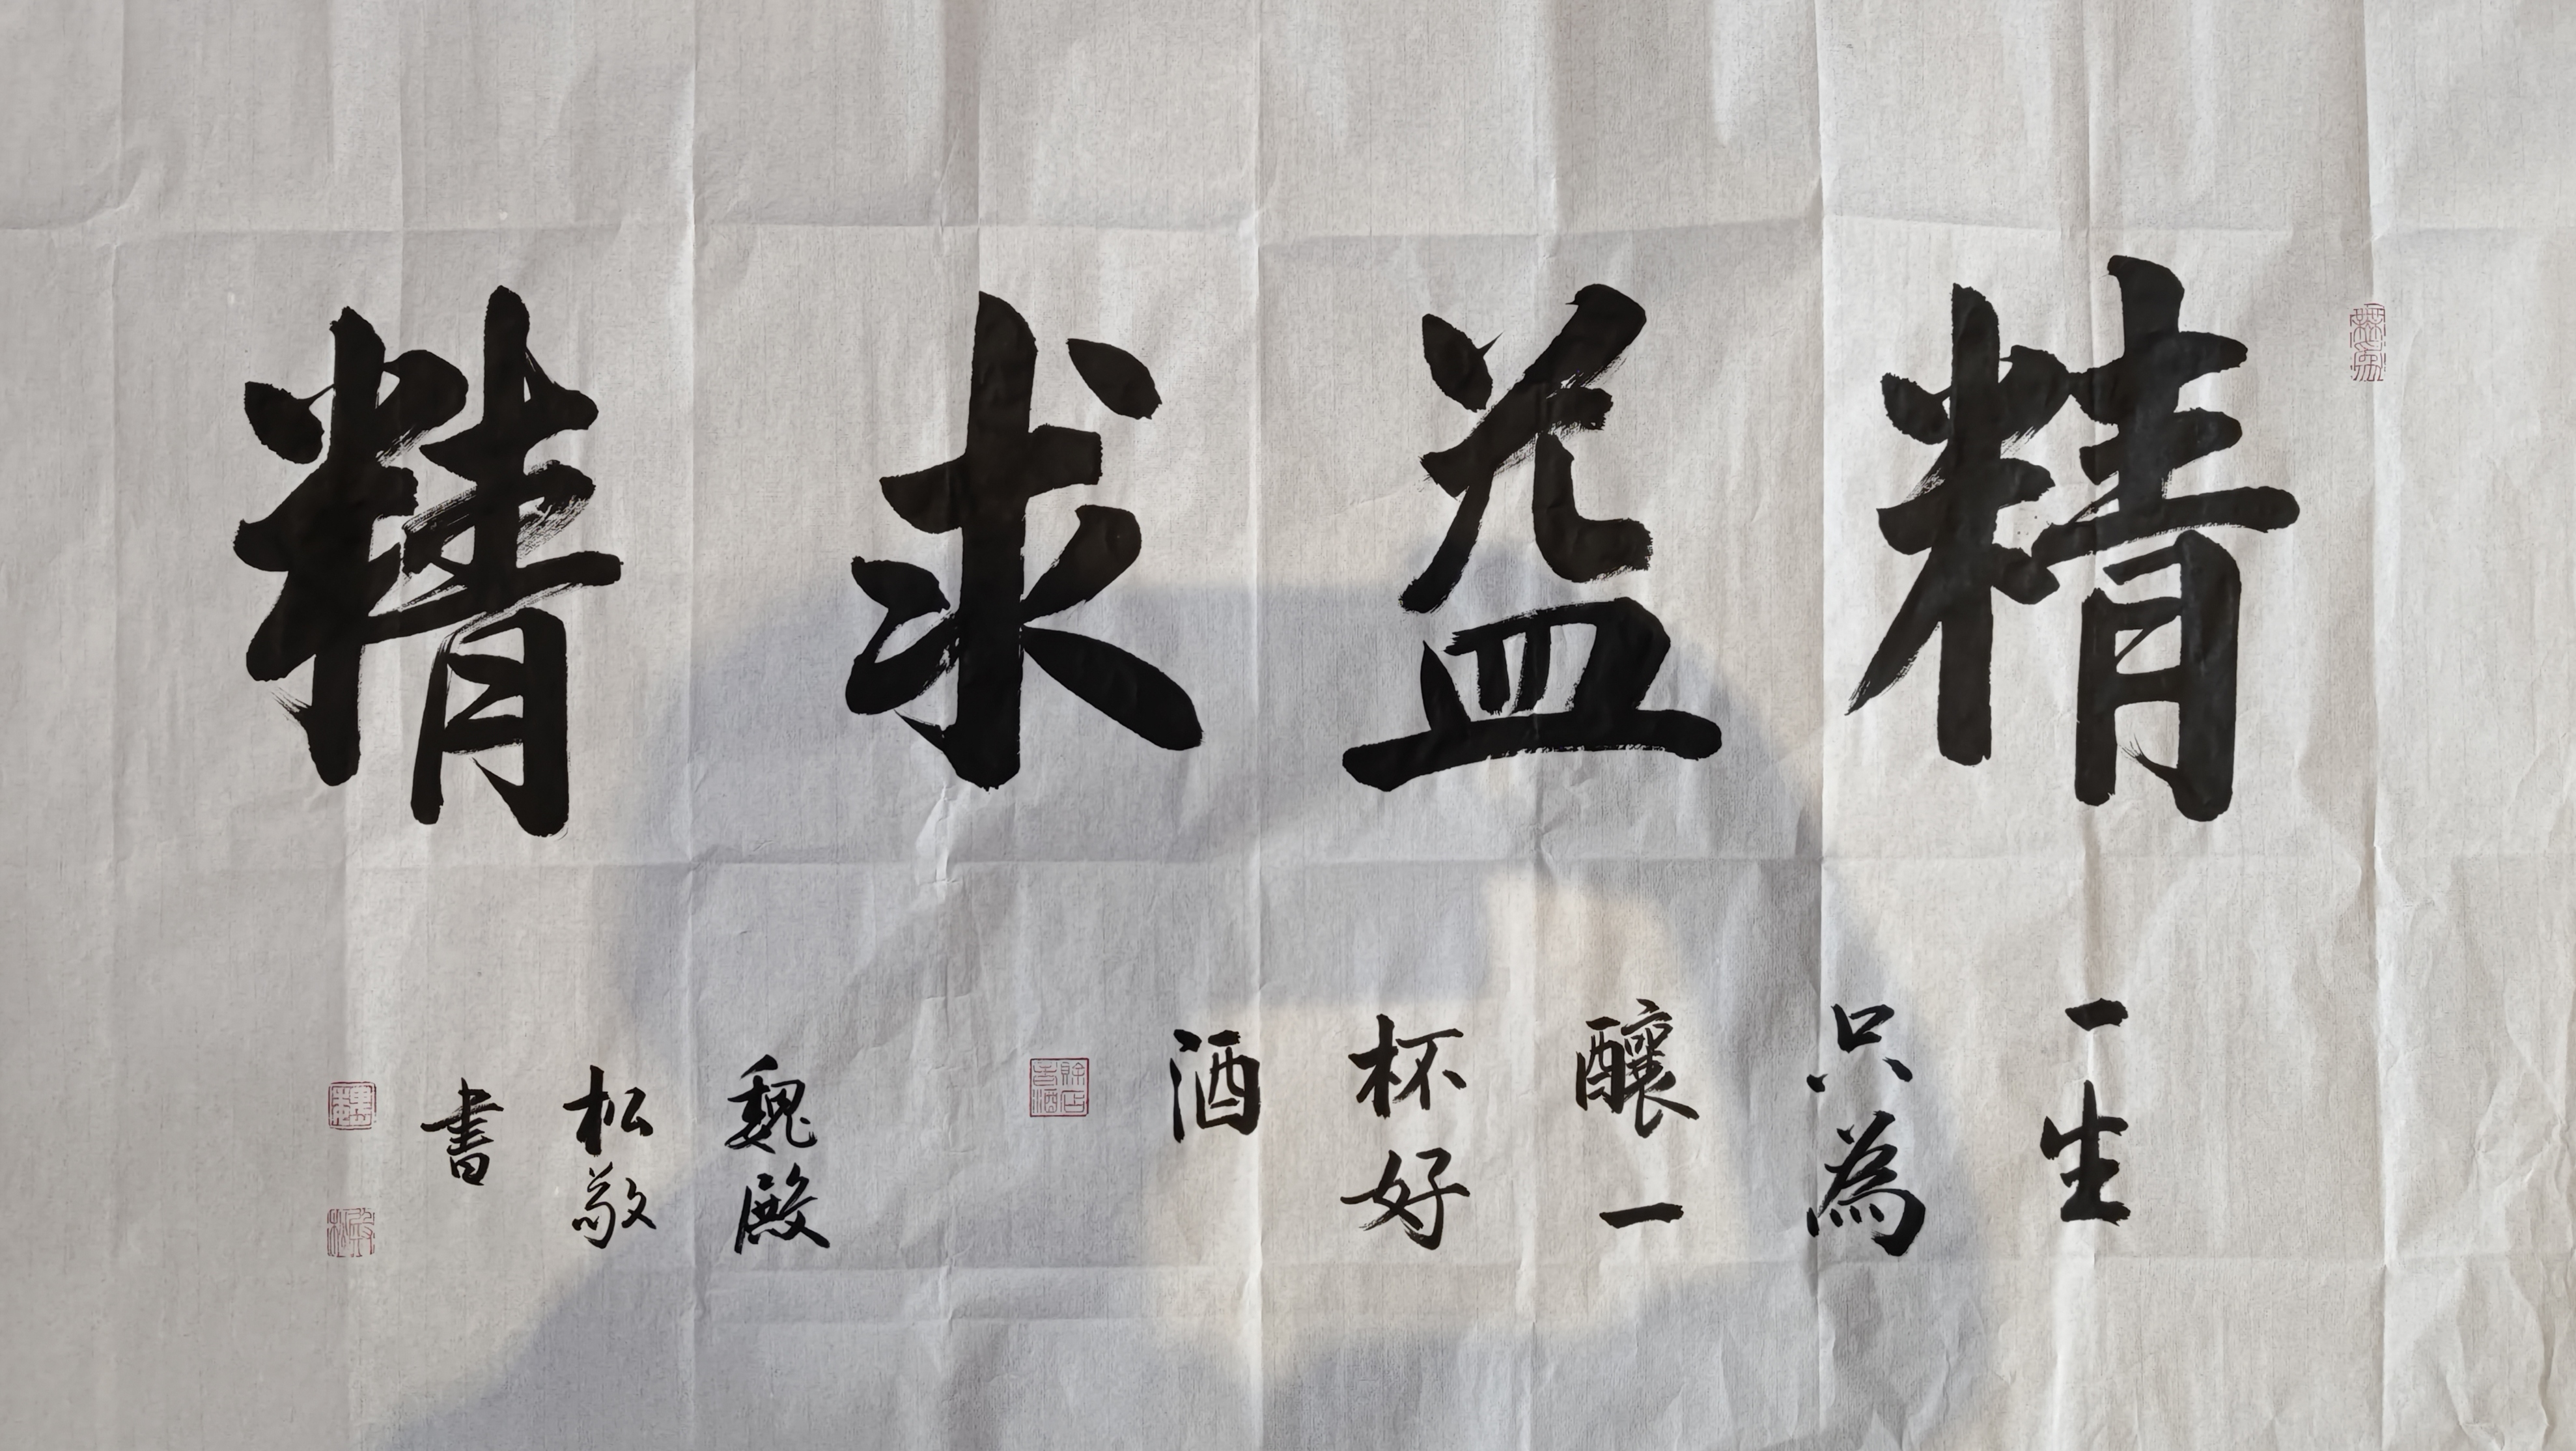 精益求精
一生
只為
釀一
杯好
酒
魏殿
松敬
書